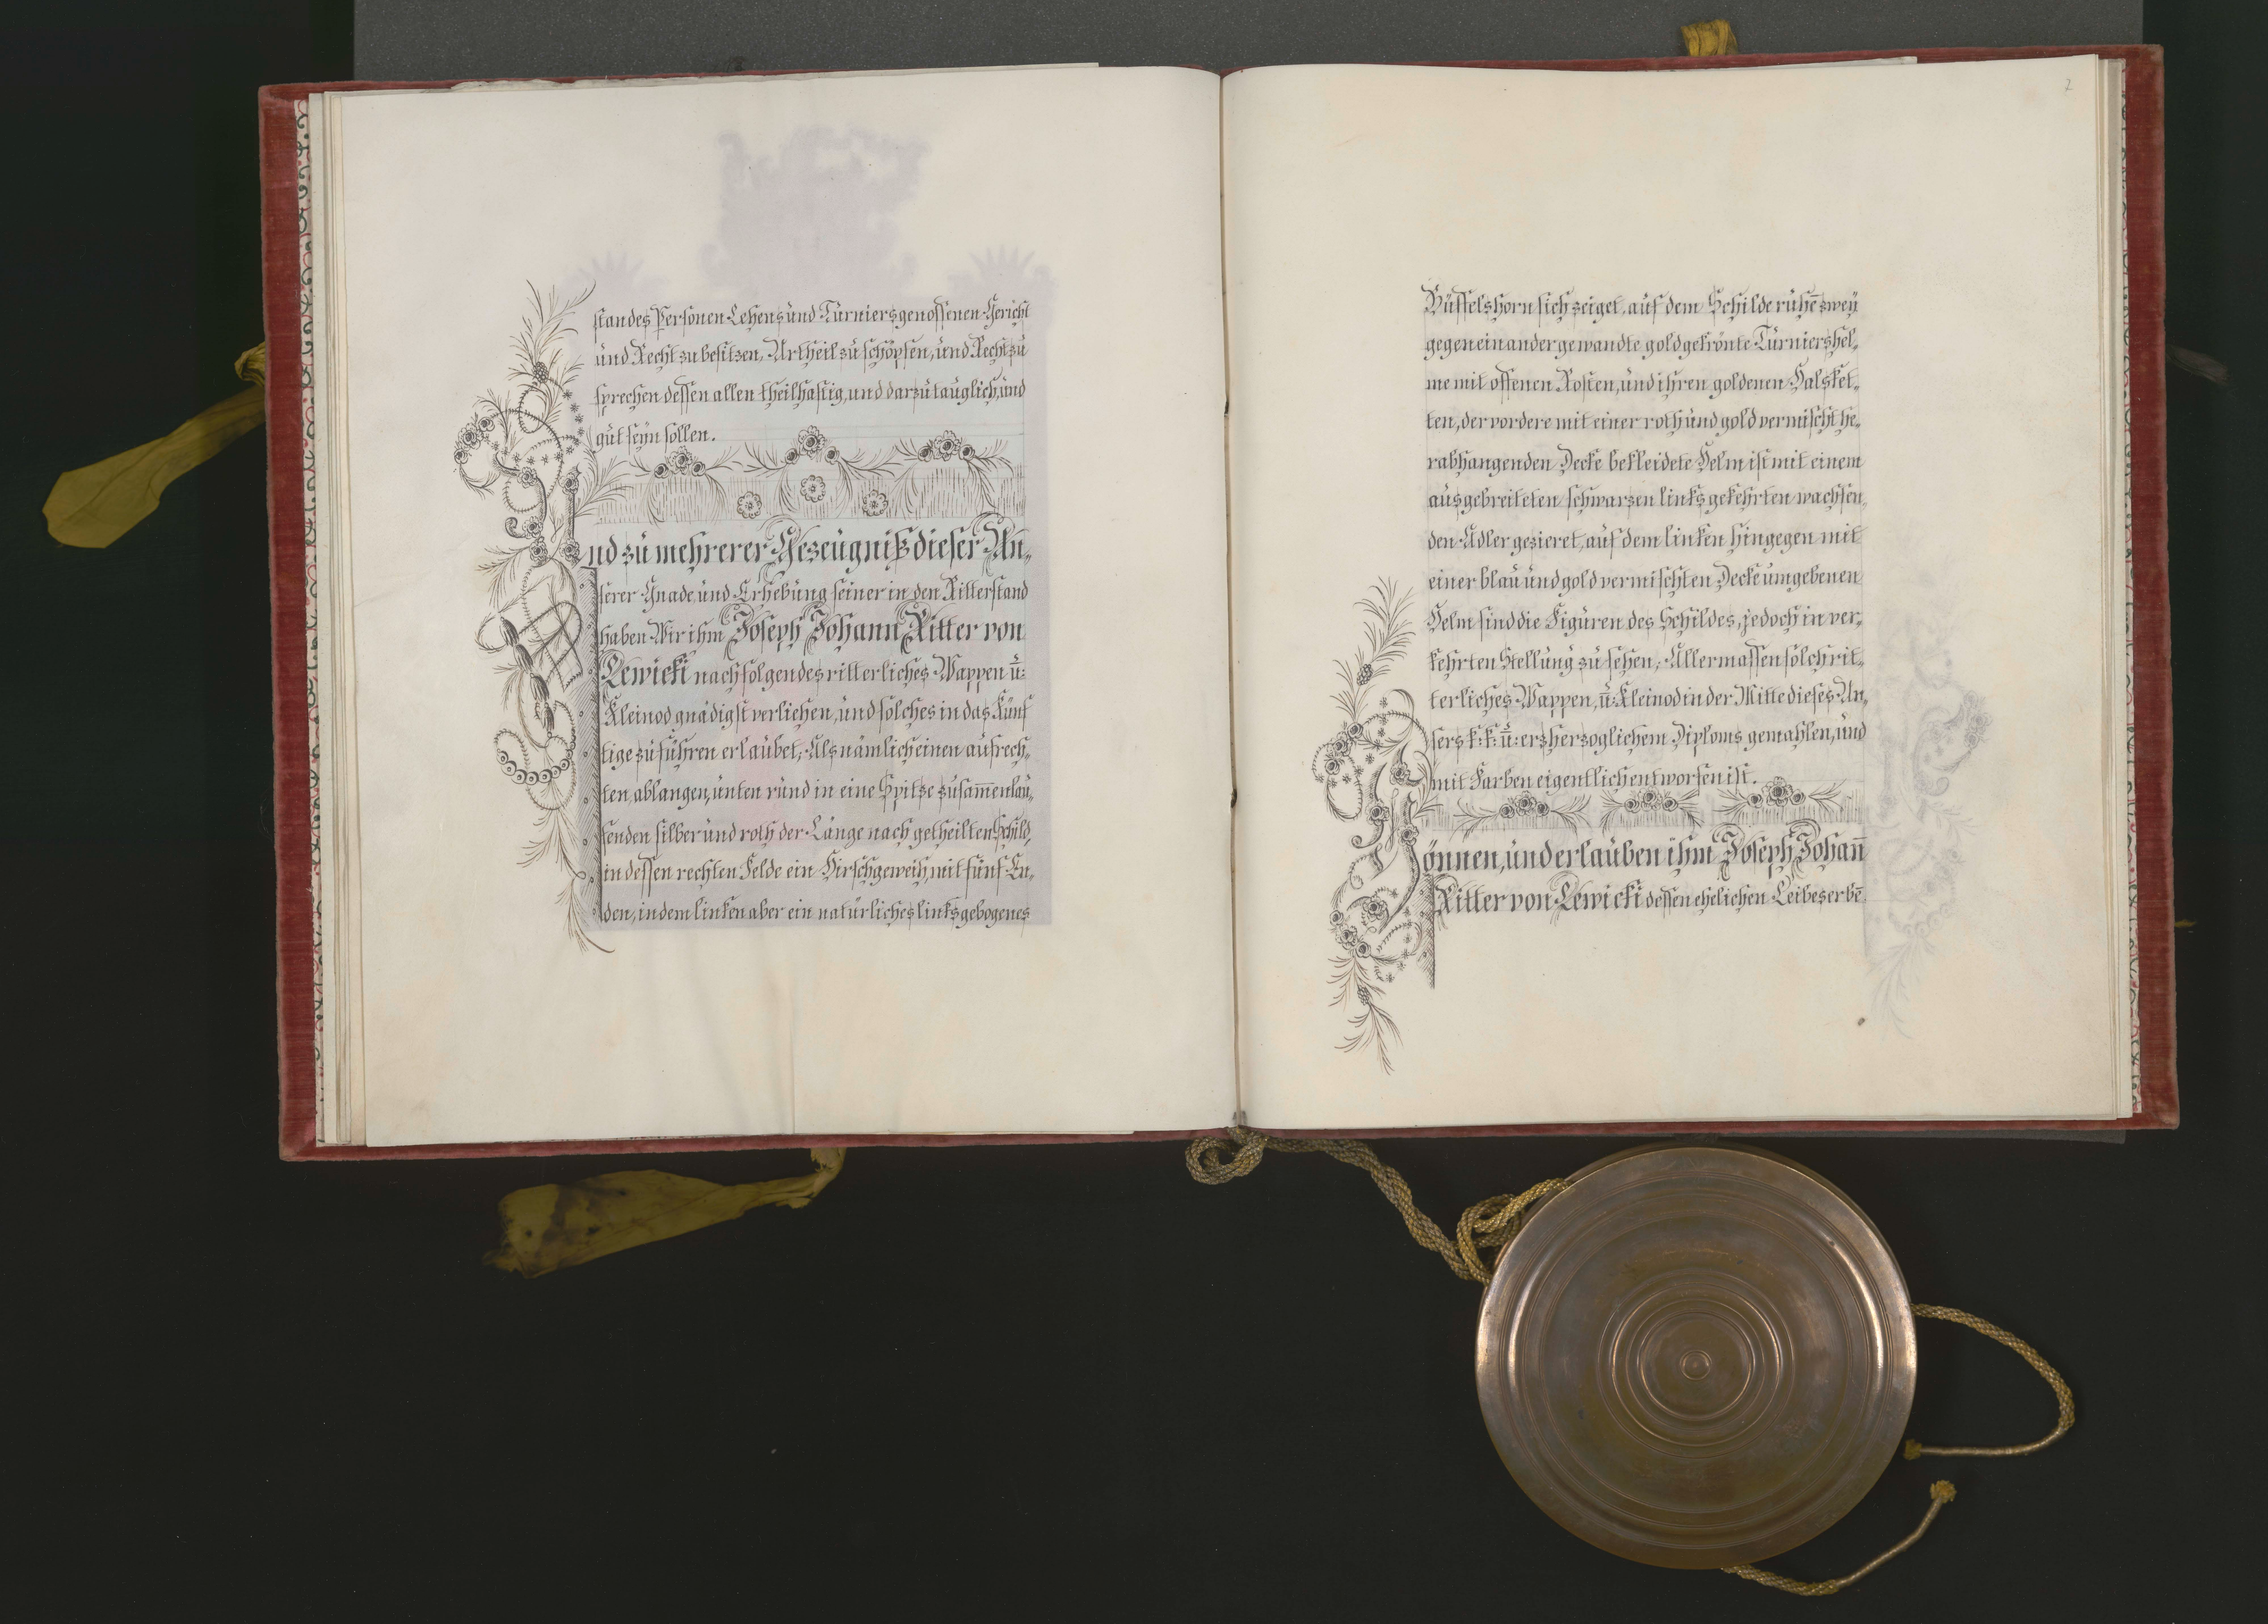 standes Personen Lehens und Turniersgenossenen Gericht
und Recht zu besitzen, Urtheil zu schöpfen, und Recht zu
sprechen dessen allen theilhaftig, und darzu tauglich, und
gut seÿn sollen.
Und zu mehrerer Gezeugniß dieser Un-
serer Gnade, und Erhebung seiner in den Ritterstand
haben Wir ihm Joseph Johann Ritter von
Lewicki nachfolgendes ritterliches Wappen u:
Kleinod gnädigst verliehen, und solches in das Künf
tige zu führen erlaubet; Als nämlich einen aufrech-
ten, ablangen, unten rund in eine Spitze zusam̄enlau-
fenden silber und roth der Länge nach getheilten Schild,
in dessen rechten Felde ein Hirschgeweih, mit fünf En-
den, in dem linken aber ein natürliches links gebogenes
2
Büffelshorn sich zeiget, auf dem Schilde ruhe͞ zweÿ
gegen einander gewandte gold gekrönte Turniershel-
me mit offenen Rosten, und ihren goldenen Halsket-
ten, der vordere mit einer roth und gold vermischt he-
rabhangenden Decke bekleidete Helm ist mit einem
ausgebreiteten schwarzen links gekehrten wachsen-
den Adler gezieret, auf dem linken hingegen mit
einer blau und gold vermischten Decke umgebenen
Helm sind die Figuren des Schildes, jedoch in ver-
kehrten Stellung zu sehen; Allermassen solch rit-
terliches Wappen, u: Kleinod in der Mitte dieses Un-
sers k: k: u: erzherzoglichem Diploms gemahlen, und
mit Farben eigentlich entworfen ist.
Gönnen, und erlauben ihm Joseph Johan̄
Ritter von Lewicki dessen ehelichen Leibeserbe͞